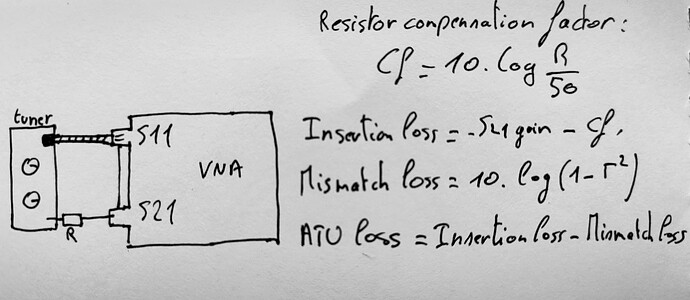 Resistor compennation factor:
Cf = 10. log R/50
tuner
S11
VNA
S21
R
Insertion loss = -S21 gain - Cf.
Mismatch loss = 10. log (1-Γ²)
ATU loss = Insertion loss - Mismatch loss